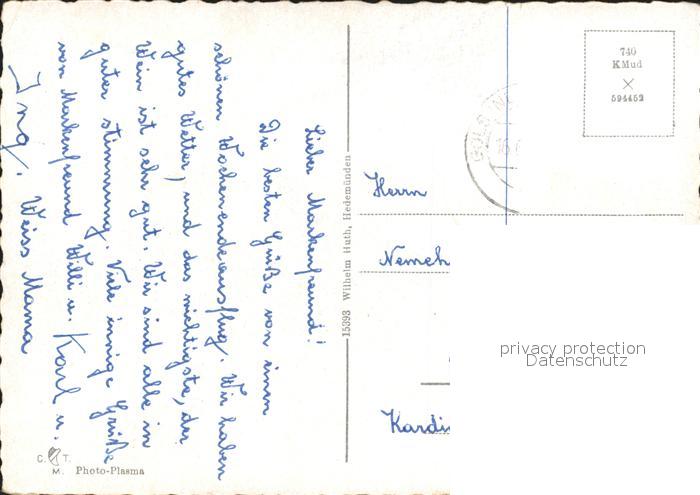 Lieber Markenfreund!
Die besten Grüße von einem
schönen Wochenendausflug. Wir haben
gutes Wetter, und das wichtigste, der
Wein ist sehr gut. Wir sind alle in
guter Stimmung. Viele innige Grüße
von Markenfreund Willi u. Karl u.
Ing. Weiss Mama
C. T.
M. Photo-Plasma
15393 Wilhelm Huth, Hedemünden
740
KMud
X
594452
Herrn
Nemeh
Kardi
privacy protection
Datenschutz